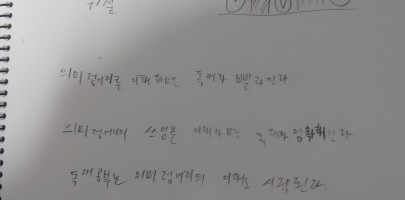 구실
의미 덩어리를 이해하면 독해가 빨라진다.
의미 덩어리의 쓰임을 이해하면 독해가 정확해진다
독해공부는 의미 덩어리의 이해로 시작된다.